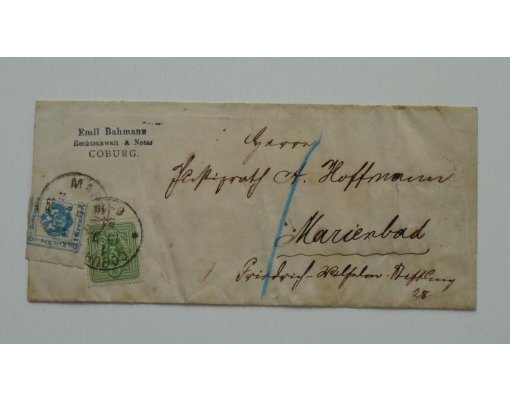 Emil Rahmann
Rechtsanwalt & Notar
COBURG.
Herrn
Justizrath A. Hoffmann
Marienbad
Friedrich-Wilhelm-
28.
MA
COBURG